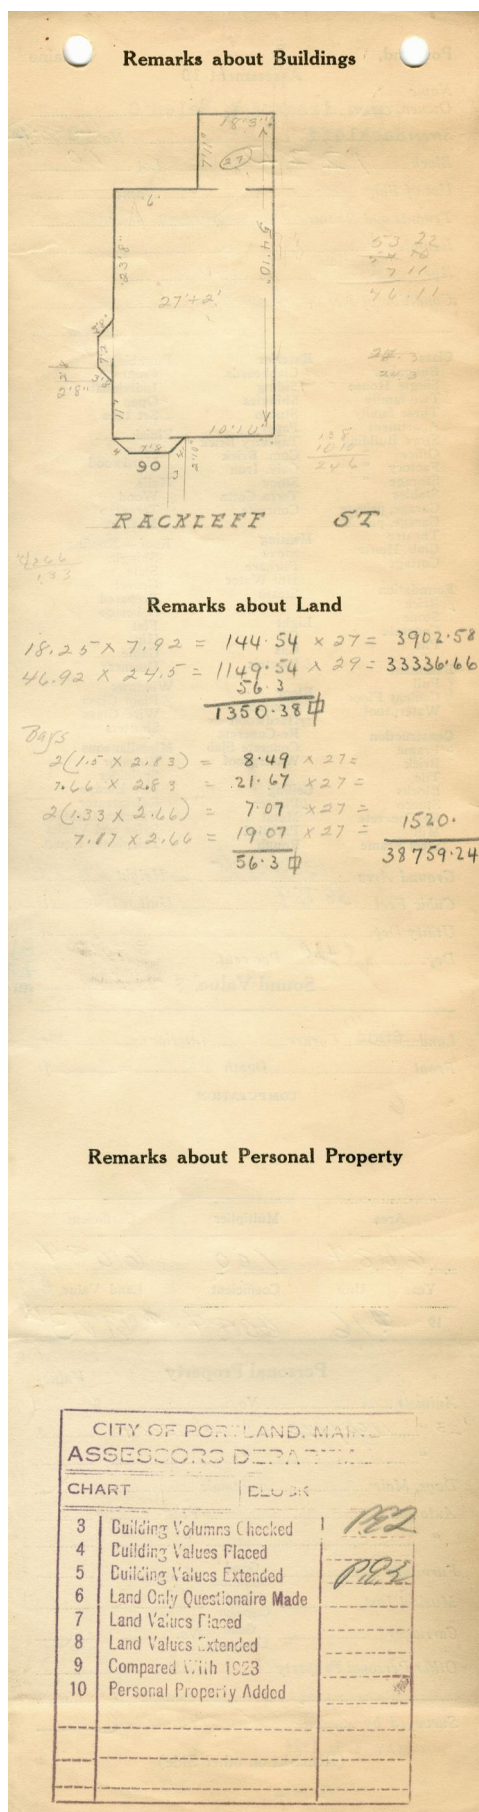 Remarks about Buildings
18'3"
27
6'
54'10"
23'8"
27'+2'
53 22
7 11
2'8"
11"
10'10"
7'8
90
246
RACKLEFF ST
Remarks about Land
18.25 x 7.92 = 144.54 x 27 = 3902.58
46.92 x 24.5 = 1149.54 x 29 = 33336.66
56.3
1350.38
Bays
2(1.5 x 2.83) = 8.49 x 27 =
7.66 x 2.83 = 21.67 x 27 =
2(1.33 x 2.66) = 7.07 x 27 =
7.17 x 2.66 = 19.07 x 27 = 1520.
56.3 38759.24
Remarks about Personal Property
CITY OF PORTLAND, MAINE
ASSESSORS DEPARTM
CHART BLOCK
3 Building Volumns Checked
4 Building Values Placed
5 Building Values Extended
6 Land Only Questionaire Made
7 Land Values Placed
8 Land Values Extended
9 Compared With 1923
10 Personal Property Added